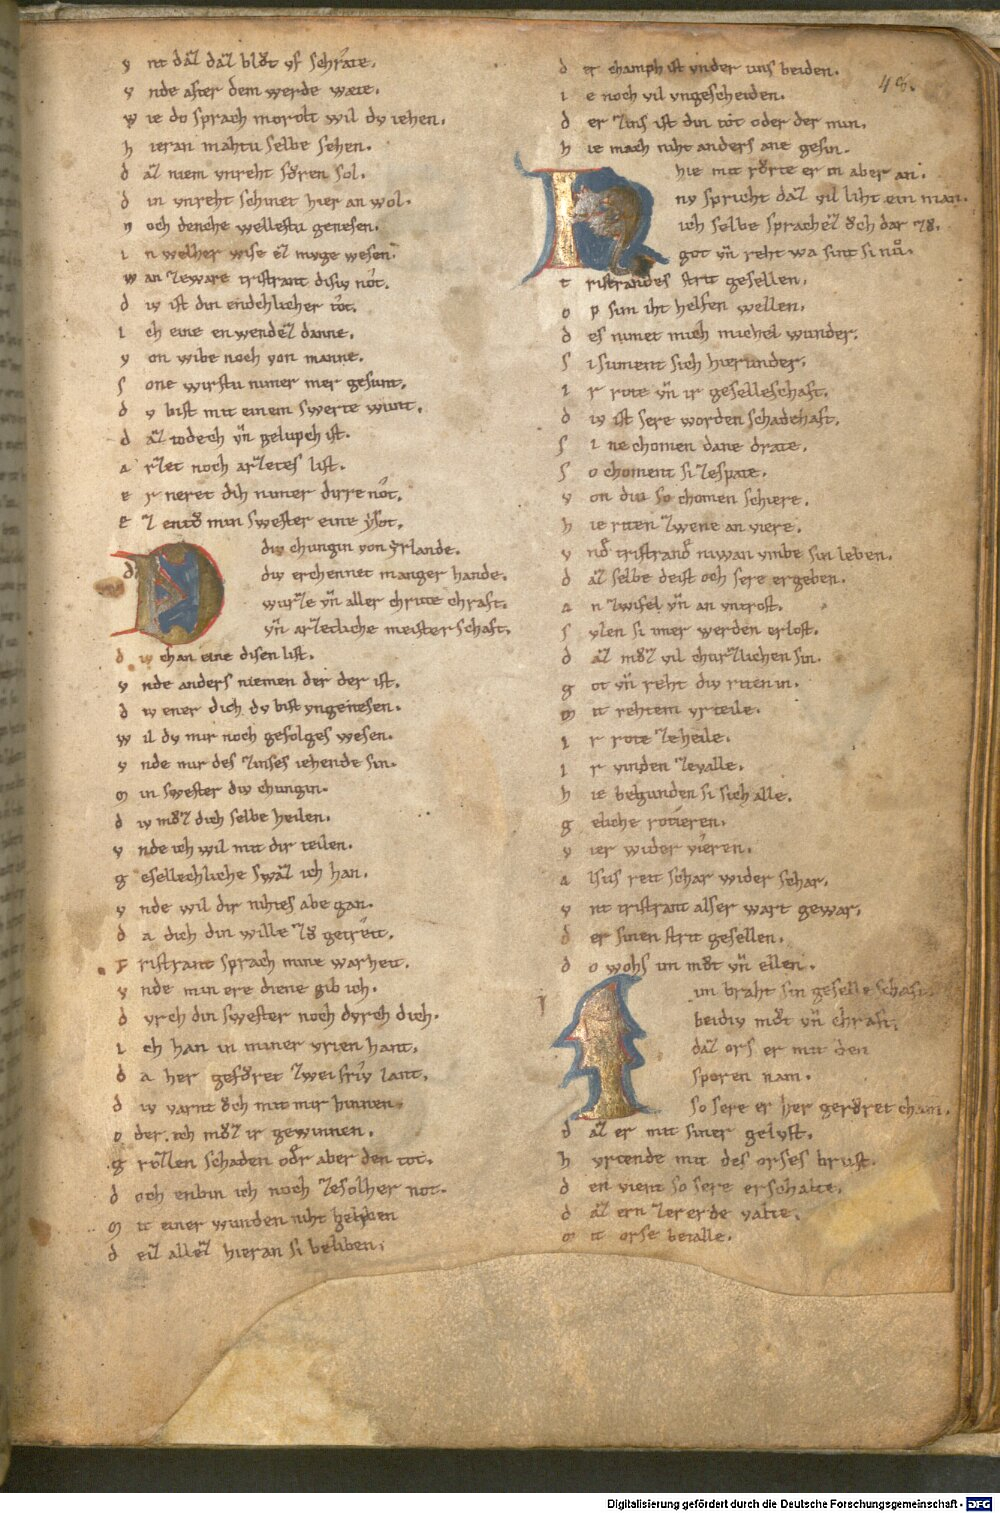 v nt daz daz blůt vf schrate.
v nde after dem werde wæte.
w ie do sprach morolt wil dv iehen.
h ieran mahtu selbe sehen.
d az niem vnreht fůren sol.
d in vnreht schinet hier an wol.
n och denche wellestu genesen.
i n welher wise ez mvge wesen.
w an zeware tristrant disiv not.
d iv ist din endchlicher tot.
i ch eine en wendez danne.
v on wibe noch von manne.
s one wirstu nimer mer gesunt.
d v bist mit einem swerte wunt.
d az todech vñ gelupch ist.
a rzet noch arzetes list.
e r neret dih nimer dirre not.
e z entů min swester eine ysot.
div chungin von yrlande.
div erchennet manger hande.
wurze vñ aller chrute chraft.
vñ arzetliche meisterschaft.
d iv chan eine disen list.
v nde anders niemen der der ist.
d iv ener dich dv bist vngenesen.
w il dv mir noch gefolges wesen.
v nde mir des zinses iehende sin.
m in swester div chungin.
d iv můz dich selbe heilen.
v nde ich wil mit dir teilen.
g esellechliche swaz ich han.
v nde wil dir nihtes abe gan.
d a dich din wille zů getreit.
T ristrant sprach mine warheit.
v nde min ere diene gib ich.
d vrch din swester noch dvrch dich.
i ch han in miner vrien hant.
d a her gefůret zwei friv lant.
d iv varnt ůch mit mir hinnen.
o der ich můz ir gewinnen.
g rozlen schaden oder aber den tot.
d och enbin ich noch zesolher not.
m it einer wunden niht getriben
d eiz allez hieran si beliben.
48.
d er champh ist vnder uns beiden.
i e noch vil vngescheiden.
d er zins ist din tot oder der min.
h ie mach niht anders ane gesin.
hie mit růrte er in aber an.
ny spricht daz vil liht ein man.
ich selbe sprachez ůch dar zů.
got vñ reht wa sint si nů.
t ristrandes strit gesellen.
o p sim iht helfen wellen.
d es nimet mich michel wunder.
s isument sich hierunder.
i r rote vñ ir geselleschaft.
d iv ist sere worden schadehaft.
s i ne chomen dane drate.
s o choment si zespate.
v on div so chomen schiere.
h ie riten zwene an viere.
v nd tristrand niwan vmbe sin leben.
d az selbe deist och sere ergeben.
a n zwifel vñ an vntrost.
s vlen si imer werden erlost.
d az můz vil churzlichen sin.
g ot vñ reht div riten in.
m it rehtem vrteile.
i r rote zeheile.
i r vinden zevalle.
h ie begunden si sich alle.
g eliche rotieren.
v ier wider vieren.
a lsus reit schar wider schar.
v nt tristrant alser wart gewar.
d er sinen strit gesellen.
d o wohs im můt vñ ellen.
im braht sin geselleschaft.
beidiv můt vñ chraft.
daz ors er mit den
sporen nam.
so sere er her gerůret cham.
d az er mit siner gelvst.
h vrtende mit des orses brust.
d en vient so sere erschatte.
d az ern zer erde valte.
m it orse betalle.
Digitalisierung gefördert durch die Deutsche Forschungsgemeinschaft - DFG